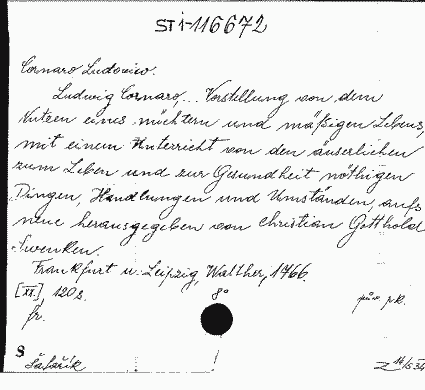 ST 1-116672
Cornaro Ludovico.
Ludwig Cornaro,... Vorstellung von dem
Nutzen eines nüchtern und mäßigen Lebens,
mit einem Unterricht von den äuserlichen
zum Leben und zur Gesundheit nöthigen
Dingen, Handlungen und Umständen, aufs
neue herausgegeben von Christian Gotthold
Swenken.
Frankfurt u. Leipzig, Walther, 1766.
[XX], 120 s. 8°
pův. pk.
fr.
S
Šafařík